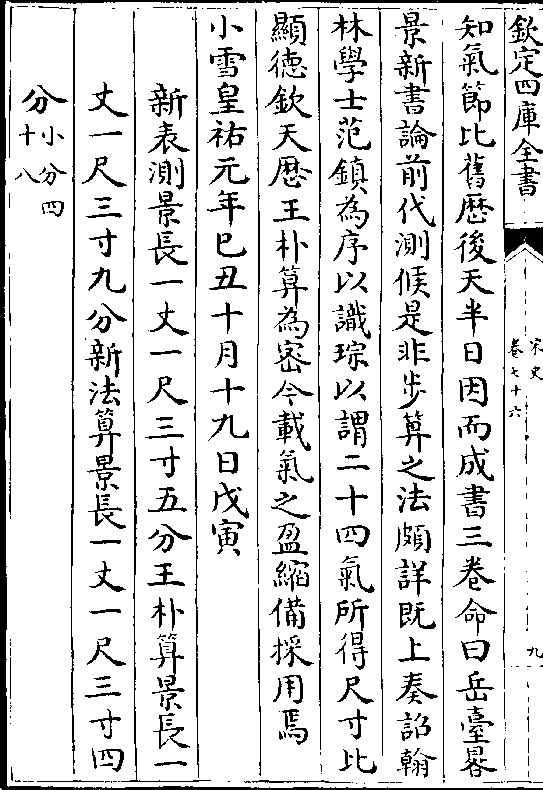 欽定四庫全書
宋史
卷七十六
九
知氣節比舊厯後天半日因而成書三卷命曰岳臺晷
景新書論前代測候是非步算之法頗詳既上奏詔翰
林學士范鎮為序以識琮以謂二十四氣所得尺寸比
顯德欽天厯王朴算為密今載氣之盈縮備採用焉
小雪皇祐元年已丑十月十九日戊寅
新表測景長一丈一尺三寸五分王朴算景長一
丈一尺三寸九分新法算景長一丈一尺三寸四
分小分四十八